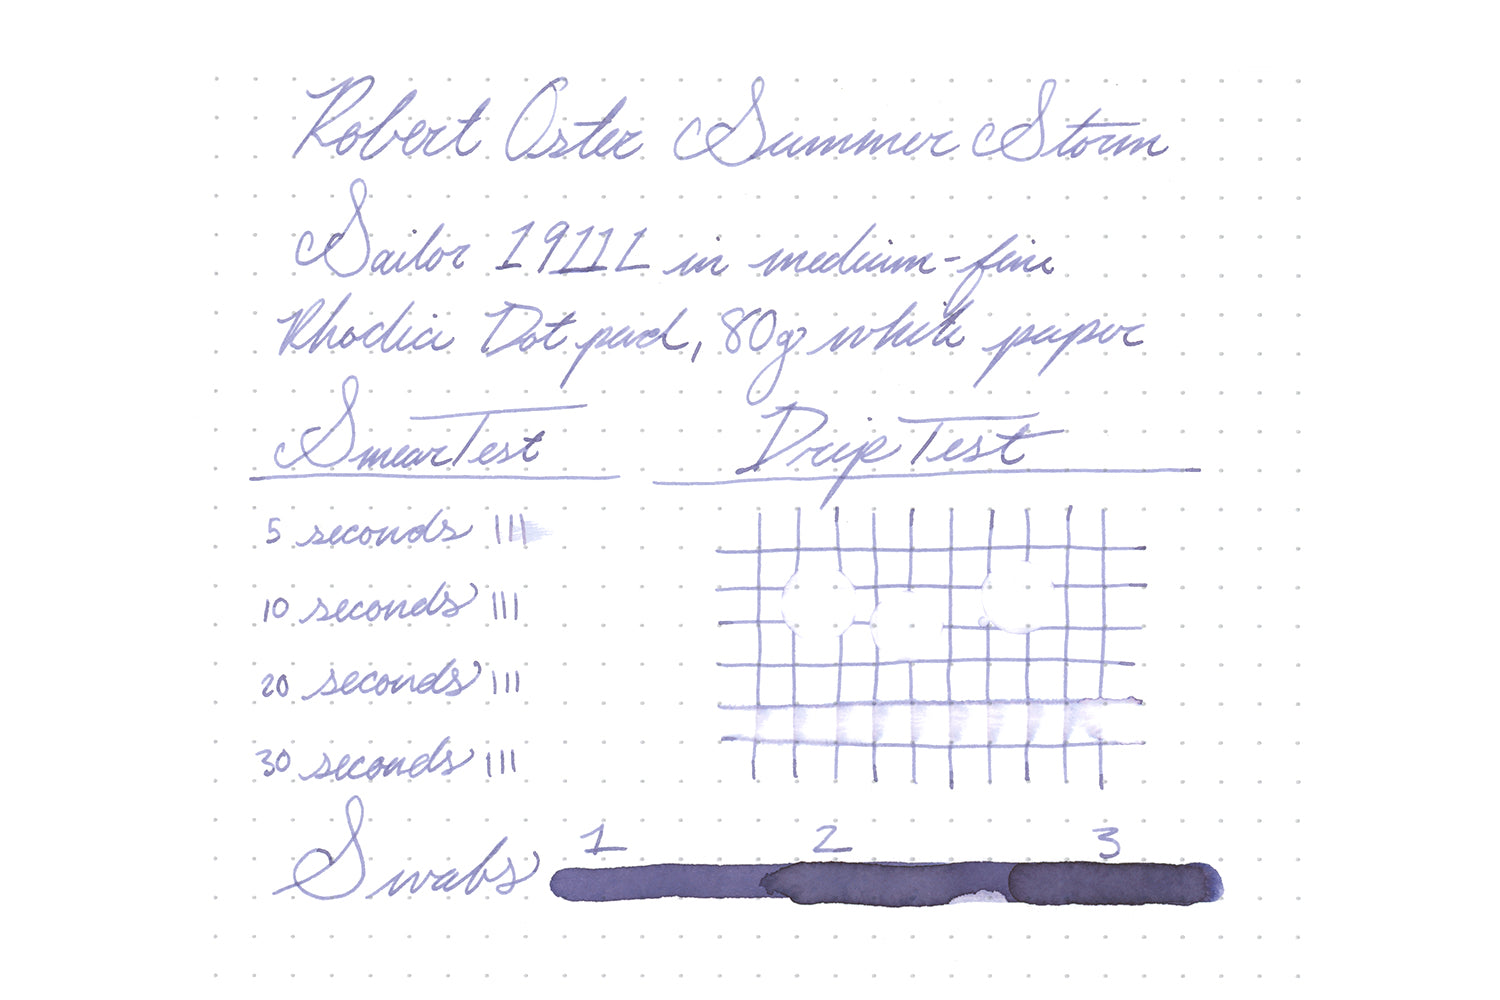 Robert Oster Summer Storm
Sailor 1911L in medium-fine
Rhodia Dot pad, 80g white paper
Smear Test
Drip Test
5 seconds
10 seconds
20 seconds
30 seconds
Swabs 1 2 3